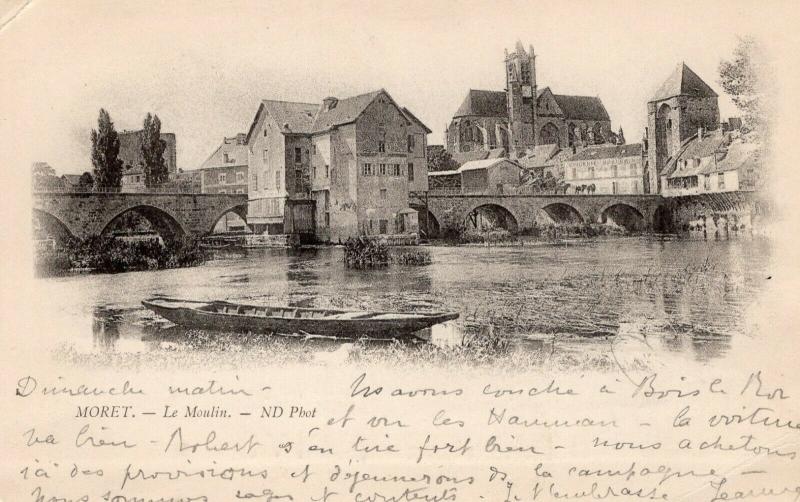 Dimanche matin - Ns avons couché à Bois le Roi
MORET. — Le Moulin. — ND Phot
et vu les Hamman - la voiture
va bien - Robert s'en tire fort bien - nous achetons
ici des provisions et déjeunerons ds la campagne -
Nous sommes sages et contents. Je t'embrasse Jeanne